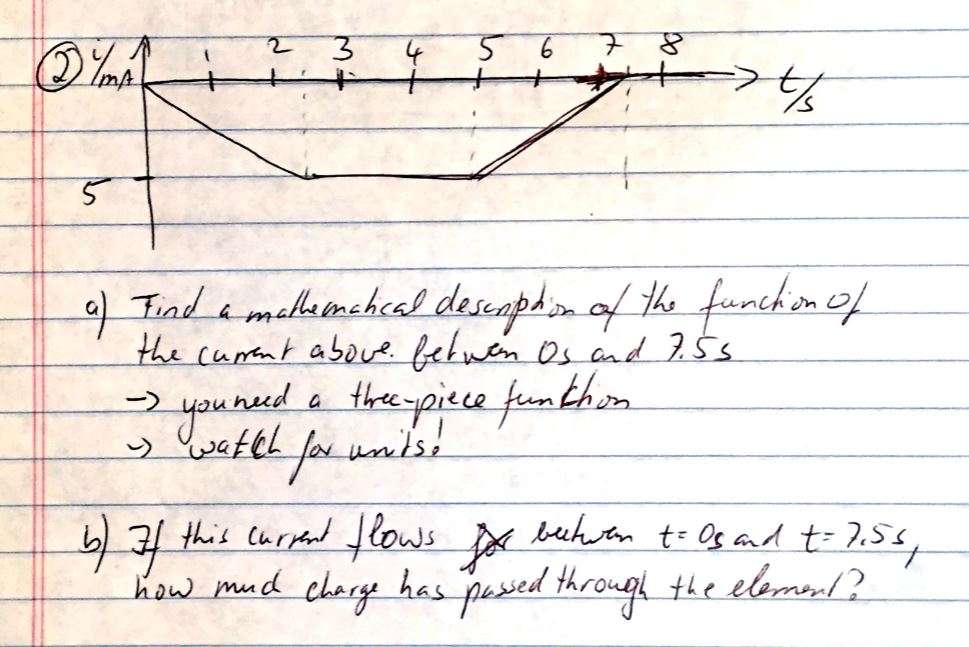 ② i/mA 1 2 3 4 5 6 7 8 t/s
5
a) Find a mathematical description of the function of
the current above. between 0s and 7.5s
→ you need a three-piece funktion
→ watch for units!
b) If this current flows between t=0s and t=7.5s,
how much charge has passed through the element?